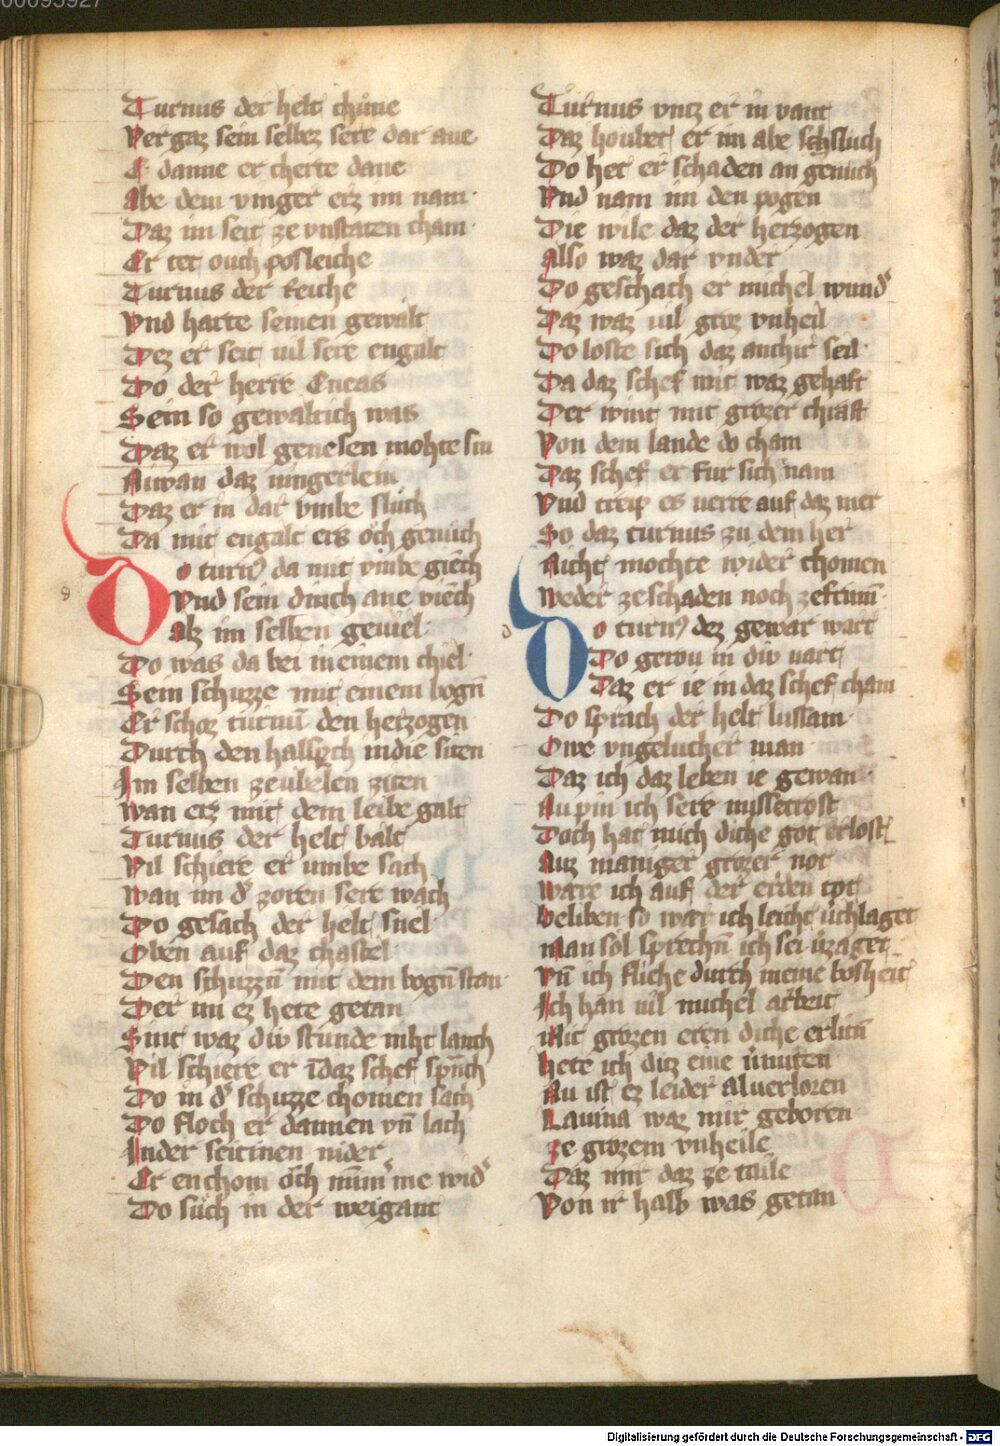 00095927
Turnus der helt chůne
Vergaz sein selbez sere dar ane
E danne er cherte dane
Abe dem vinger erz im nam
Daz im seit ze vnstaten cham
Er tet ouch posleiche
Turnus der Reiche
Vnd hatte seinen gewalt
Dez er seit uil sere engalt
Do der herre Eneas
Sein so gewaltich was
Daz er wol genesen mohte sin
Niwan daz uingerlein
Daz er in dar vmbe sluch
Da mit engalt ers och genuch
Do turn9 da mit vmbe giech
Vnd sein dinch ane viech
Alz im selben geuiel
Do was da bei in einem chiel
Sein schuzze mit einem bogn̄
Er schoz turnū den herzogen
Durch den halsp̱ch in die siten
Im selben ze ubelen ziten
wan erz mit dem leibe galt
Turnus der helt balt
Vil schiere er umbe sach
wan im d' zoren sere wach
Do gesach der helt snel
Oben auf daz chastel
Den schuzzn̄ mit dem bogn̄ stan
Der im ez hete getan
Sint waz div stunde niht lanch
Vil schiere er ī daz schef spn̄ch
Do in d' schuzze chomen sach
Do floch er dannen vn̄ lach
In der seitinen nider
Er enchom och nim̄ me wid'
Do sůch in der weigant
Turnus vntz er in vant
Daz houbet er im abe schsluch
Do het er schaden an genuch
Vnd nam im den pogen
Die wile daz der herzogen
Also waz dar vnder
Do geschach er michel wund'
Daz waz uil groz vnheil
Do loste sich daz anchir seil
Da daz schef mit waz gehaft
Der wint mit grozer chraft
Von dem lande do cham
Daz schef er fur sich nam
Vnd treip es uerre auf daz mer
So daz turnus zu dem her
Nicht mochte wider chomen
weder ze schaden noch ze frumū
Do turn9 dez gewar wart
Do gerou in div uart
Daz er ie in daz schef cham
Do sprach der helt lussam
Owe vngelucher man
Daz ich daz leben ie gewan
Nu pin ich sere missetrost
Doch hat mich diche got erlost
Auz maniger grozer not
ware ich auf der erden tot
beliben so war ich leicht u̇chlaget
man sol sprechn̄ ich sei u̇zaget
Vn̄ ich fliche durch meine bosheit
Ich han uil michel arbeit
Mit grozen eren diche erlitn̄
hete ich ditz eine u̇miten
Nu ist ez leider al verloren
Lauina waz mir geboren
ze grozem vnheile
Daz mir daz ze taile
Von ir halb was getan
Digitalisierung gefördert durch die Deutsche Forschungsgemeinschaft - DFG